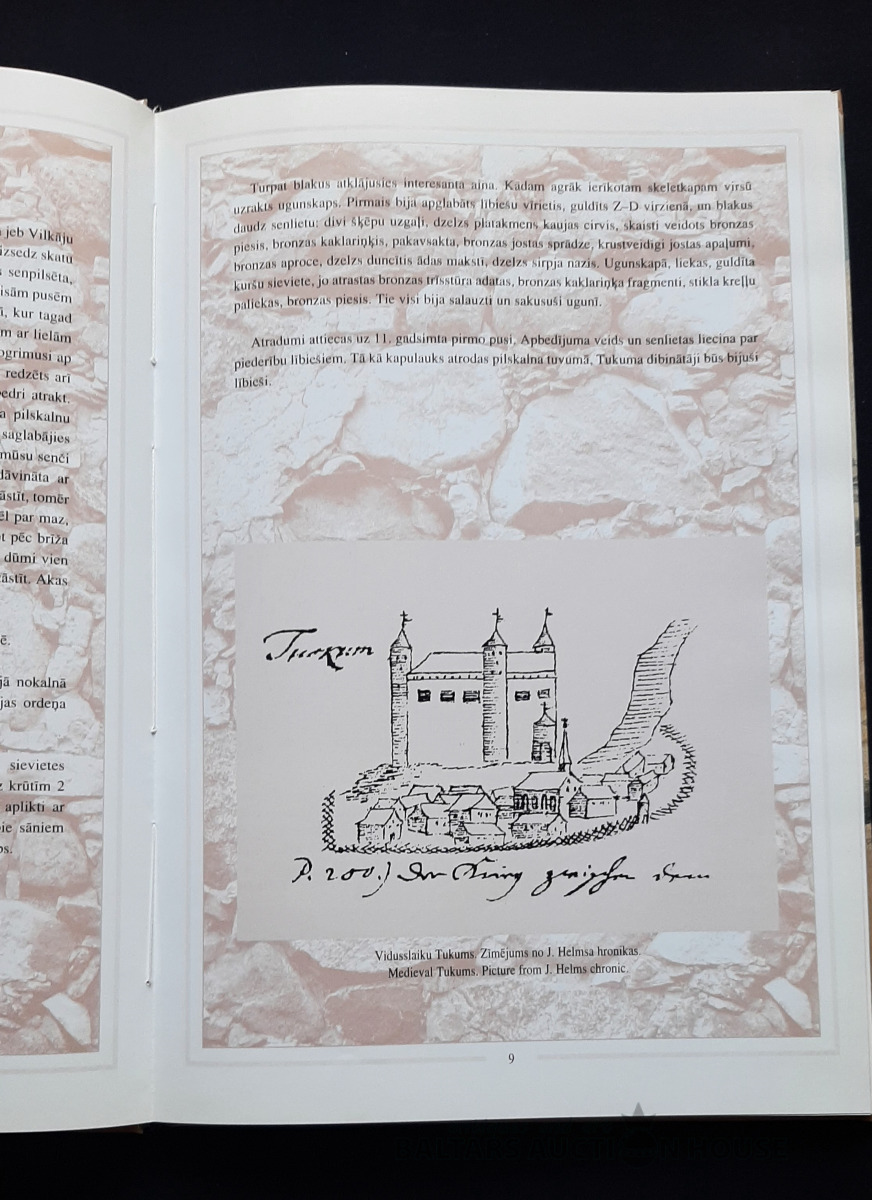 jeb Vilkāju
izsedz skatu
senpilsēta,
isām pusēm
ī, kur tagad
m ar lielām
ogrimusi ap
redzēts arī
edri atrakt.
a pilskalnu
saglabājies
mūsu senči
dāvināta ar
āstīt, tomēr
ēl par maz,
t pēc brīža
dūmi vien
āstīt. Akas
ē.
jā nokalnā
jas ordeņa
sievietes
z krūtīm 2
aplikti ar
pie sāniem
os.
Turpat blakus atklājusies interesanta aina. Kādam agrāk ierīkotam skeletkapam virsū
uzrakts ugunskaps. Pirmais bija apglabāts lībiešu vīrietis, guldīts Z–D virzienā, un blakus
daudz senlietu: divi šķēpu uzgaļi, dzelzs platasmens kaujas cirvis, skaisti veidots bronzas
piesis, bronzas kaklariņķis, pakavsakta, bronzas jostas sprādze, krustveidīgi jostas apaļumi,
bronzas aproce, dzelzs duncītis ādas makstī, dzelzs sirpja nazis. Ugunskapā, liekas, guldīta
kuršu sieviete, jo atrastas bronzas trīsstūra adatas, bronzas kaklariņķa fragmenti, stikla kreļļu
paliekas, bronzas piesis. Tie visi bija salauzti un sakusuši ugunī.
Atradumi attiecas uz 11. gadsimta pirmo pusi. Apbedījuma veids un senlietas liecina par
piederību lībiešiem. Tā kā kapulauks atrodas pilskalna tuvumā, Tukuma dibinātāji būs bijuši
lībieši.
Tuckum
P. 200.) Der Krieg zwischen dem
Vidusslaiku Tukums. Zīmējums no J. Helmsa hronikas.
Medieval Tukums. Picture from J. Helms chronic.
9
BALTARS AUCTION HOUSE